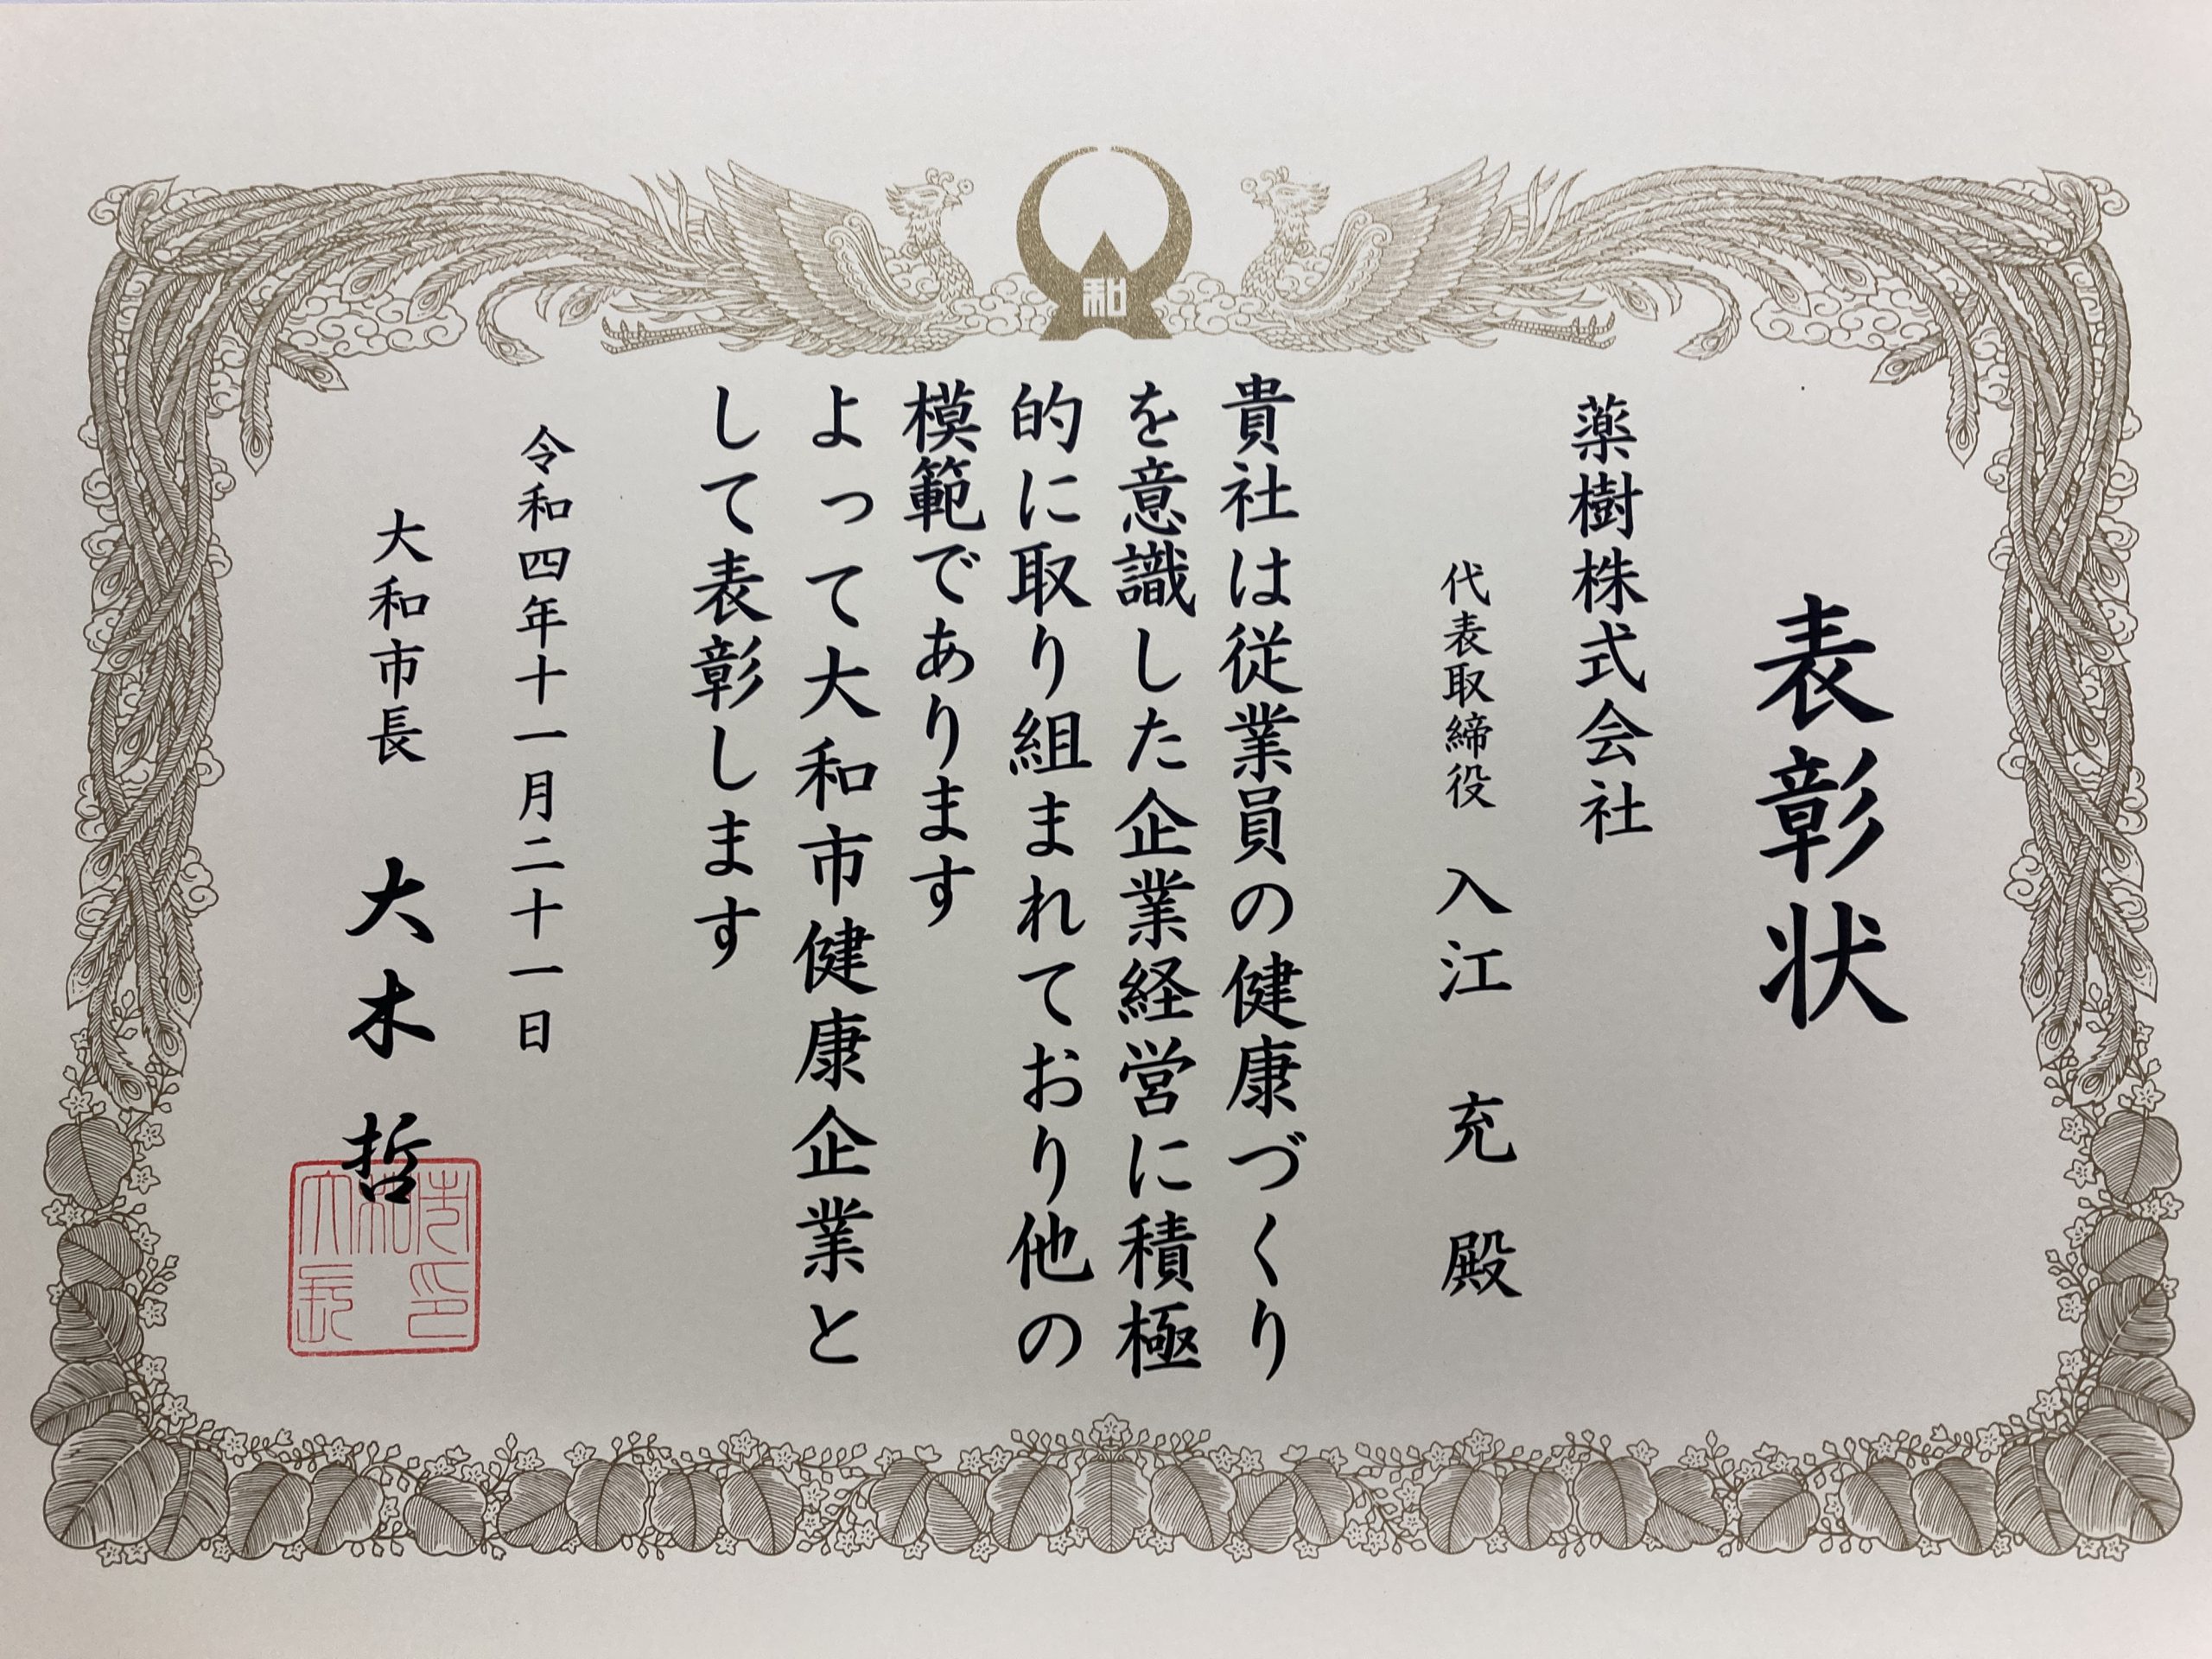 表彰状
薬樹株式会社
代表取締役 入江 充 殿
貴社は従業員の健康づくり
を意識した企業経営に積極
的に取り組まれており他の
模範であります
よって大和市健康企業と
して表彰します
令和四年十一月二十一日
大和市長 大木 哲
和